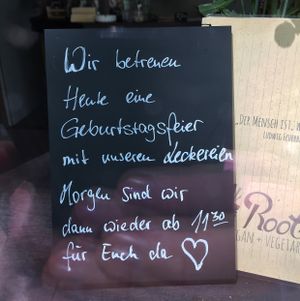 Wir betreuen
Heute eine
Geburtstagsfeier
mit unseren Leckereien
Morgen sind wir
dann wieder ab 11³⁰
für Euch da ♡
„DER MENSCH IST, W
LUDWIG FEUERB
Roots
GAN + VEGETAR